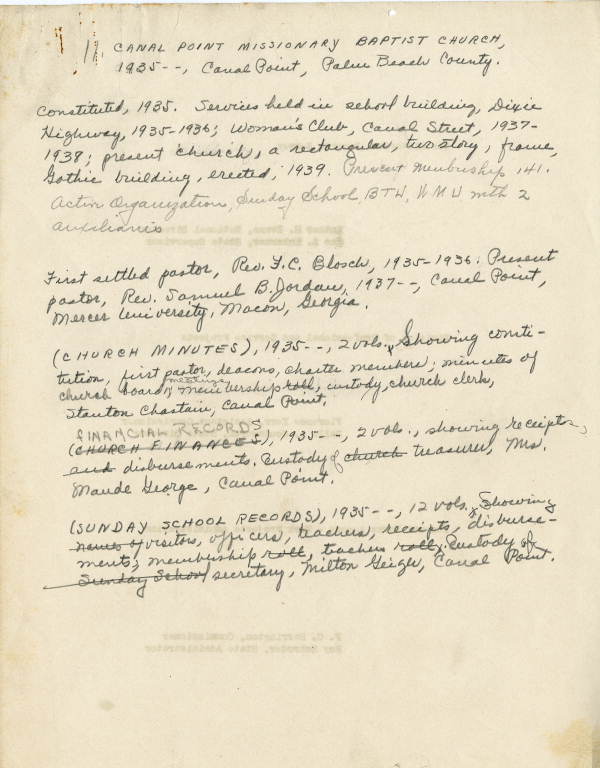 CANAL POINT MISSIONARY BAPTIST CHURCH,
1935--, Canal Point, Palm Beach County.
Constituted, 1935. Services held in school building, Dixie
Highway, 1935-1936; Woman's Club, Canal Street, 1937-
1938; present church, a rectangular, two story, frame,
Gothic building, erected, 1939. Present Membership 141.
Active Organization, Sunday School, BTU, WMU with 2
auxiliaries
First settled pastor, Rev. F.C. Blosch, 1935-1936. Present
pastor, Rev. Samuel B. Jordan, 1937--, Canal Point,
Mercer University, Macon, Georgia.
(CHURCH MINUTES), 1935--, 2 vols., Showing consti-
tution, first pastor, deacons, charter members; minutes of
church board meetings, membership roll, custody, church clerk,
Stanton Chastain, Canal Point.
FINANCIAL RECORDS
(CHURCH FINANCES), 1935--, 2 vols., showing receipts,
and disbursements. Custody of church treasurer, Mrs.
Maude George, Canal Point.
(SUNDAY SCHOOL RECORDS), 1935--, 12 vols., Showing
names of visitors, officers, teachers, receipts, disburse-
ments; membership roll, teachers roll; Custody of
Sunday School secretary, Milton Geiger, Canal Point.